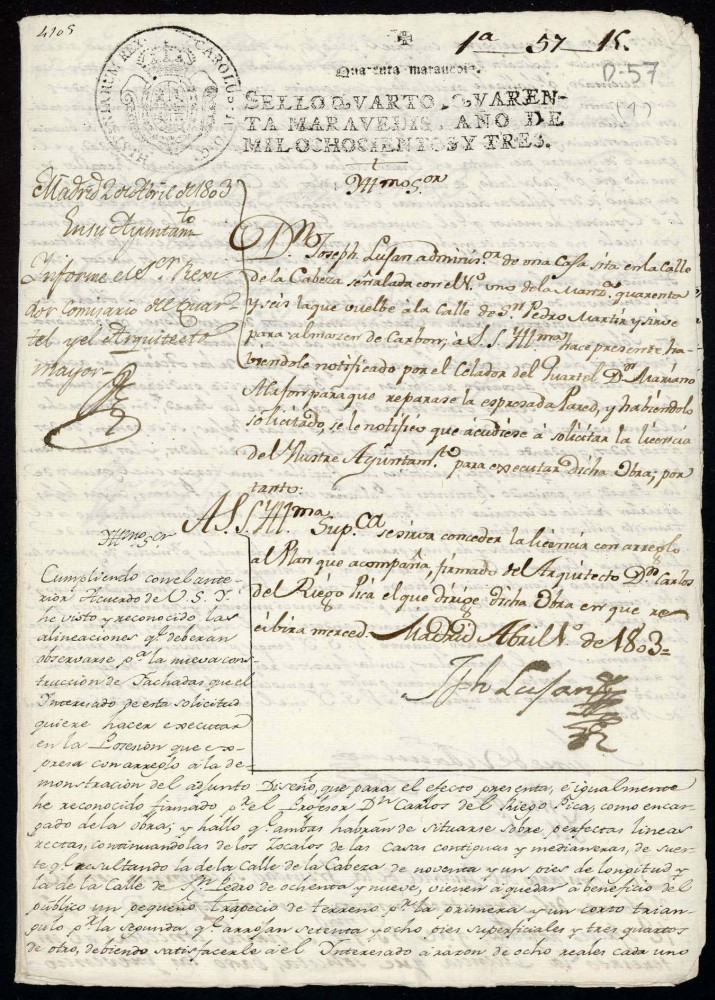 4105
1ª 57 15.
0-57
(1)
HISPANIARUM REX. CAROLUS IV D. G.
Quarenta maravedis.
SELLO QVARTO, QVAREN-
TA MARAVEDIS, AÑO DE
MIL OCHOCIENTOS Y TRES.
Yllmo Sor
Madrid 2 de Abril de 1803
En su Ayuntamto
Informe el Sr Rexi-
dor Comisario del Quar-
tel y el Arquitecto
mayor-
Dn Joseph Lusan adminisor de una Casa sita en la Calle
de la Cabeza señalada con el No. uno de la Manza. quarenta
y seis la que vuelbe à la Calle de Sn Pedro Martir y sirve
para almazen de Carbon; à S. S. Yllma hace presente ha-
viendole notificado por el Celador del Quartel Dn Mariano
Alafon para que reparase la espresada Pared, y habiéndolo
solicitado, se le notificó que acudiese à solicitar la licencia
del Ylustre Ayuntamto. para executar dicha Obra; por
tanto:
A S. S. Yllma Supca se sirva conceder la licencia con arreglo
al Plan que acompaña, firmado del Arquitecto Dn Carlos
del Riego Pica el que dirige dicha Obra en que re-
cibira merced. Madrid Abril 1o. de 1803=
Jph Lusan
Yllmo Sor
Cumpliendo con el ante-
rior Acuerdo de V. S. Y.
he visto y reconocido las
alineaciones qe deberan
observarse pa la nueva cons-
truccion de Fachadas que el
Interesado de esta solicitud
quiere hacer executar
en la Posesion que ex-
presa con arreglo à la de-
monstracion del adjunto Diseño, que para el efecto presenta, è igualmente
he reconocido firmado pr el Profesor Dn Carlos del Riego Pica, como encar-
gado de la obra; y hallo qe ambas habrán de situarse sobre perfectas lineas
rectas, continuandolas de los Zocalos de las Casas contiguas y medianeras, de suer-
te qe resultando la de la Calle de la Cabeza de noventa y un pies de longitud y
la de la Calle de Sn Pedro de ochenta y nueve, vienen à quedar a beneficio del
público un pequeño trapecio de terreno pr la primera y un corto trian-
gulo pr la segunda qe arrojan setenta y ocho pies superficiales y tres quartos
de otro, debiendo satisfacerle à el Interesado à razon de ocho reales cada uno